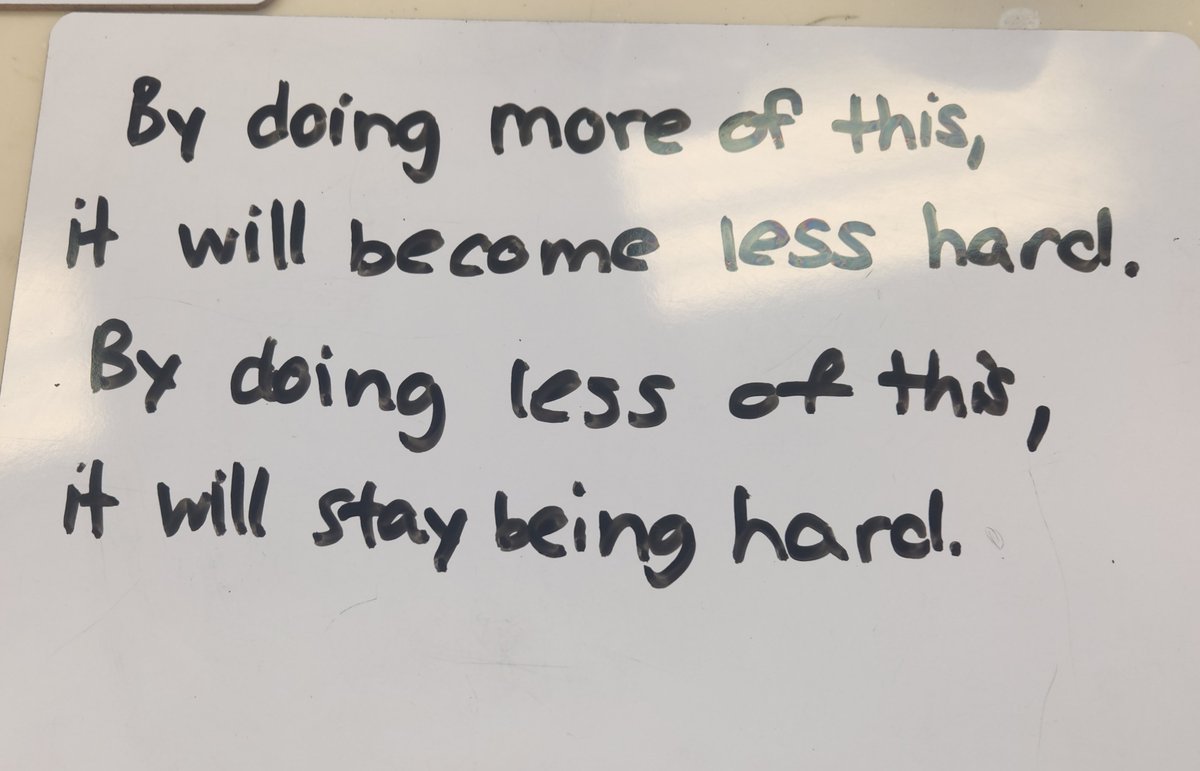 By doing more of this,
it will become less hard.
By doing less of this,
it will stay being hard.